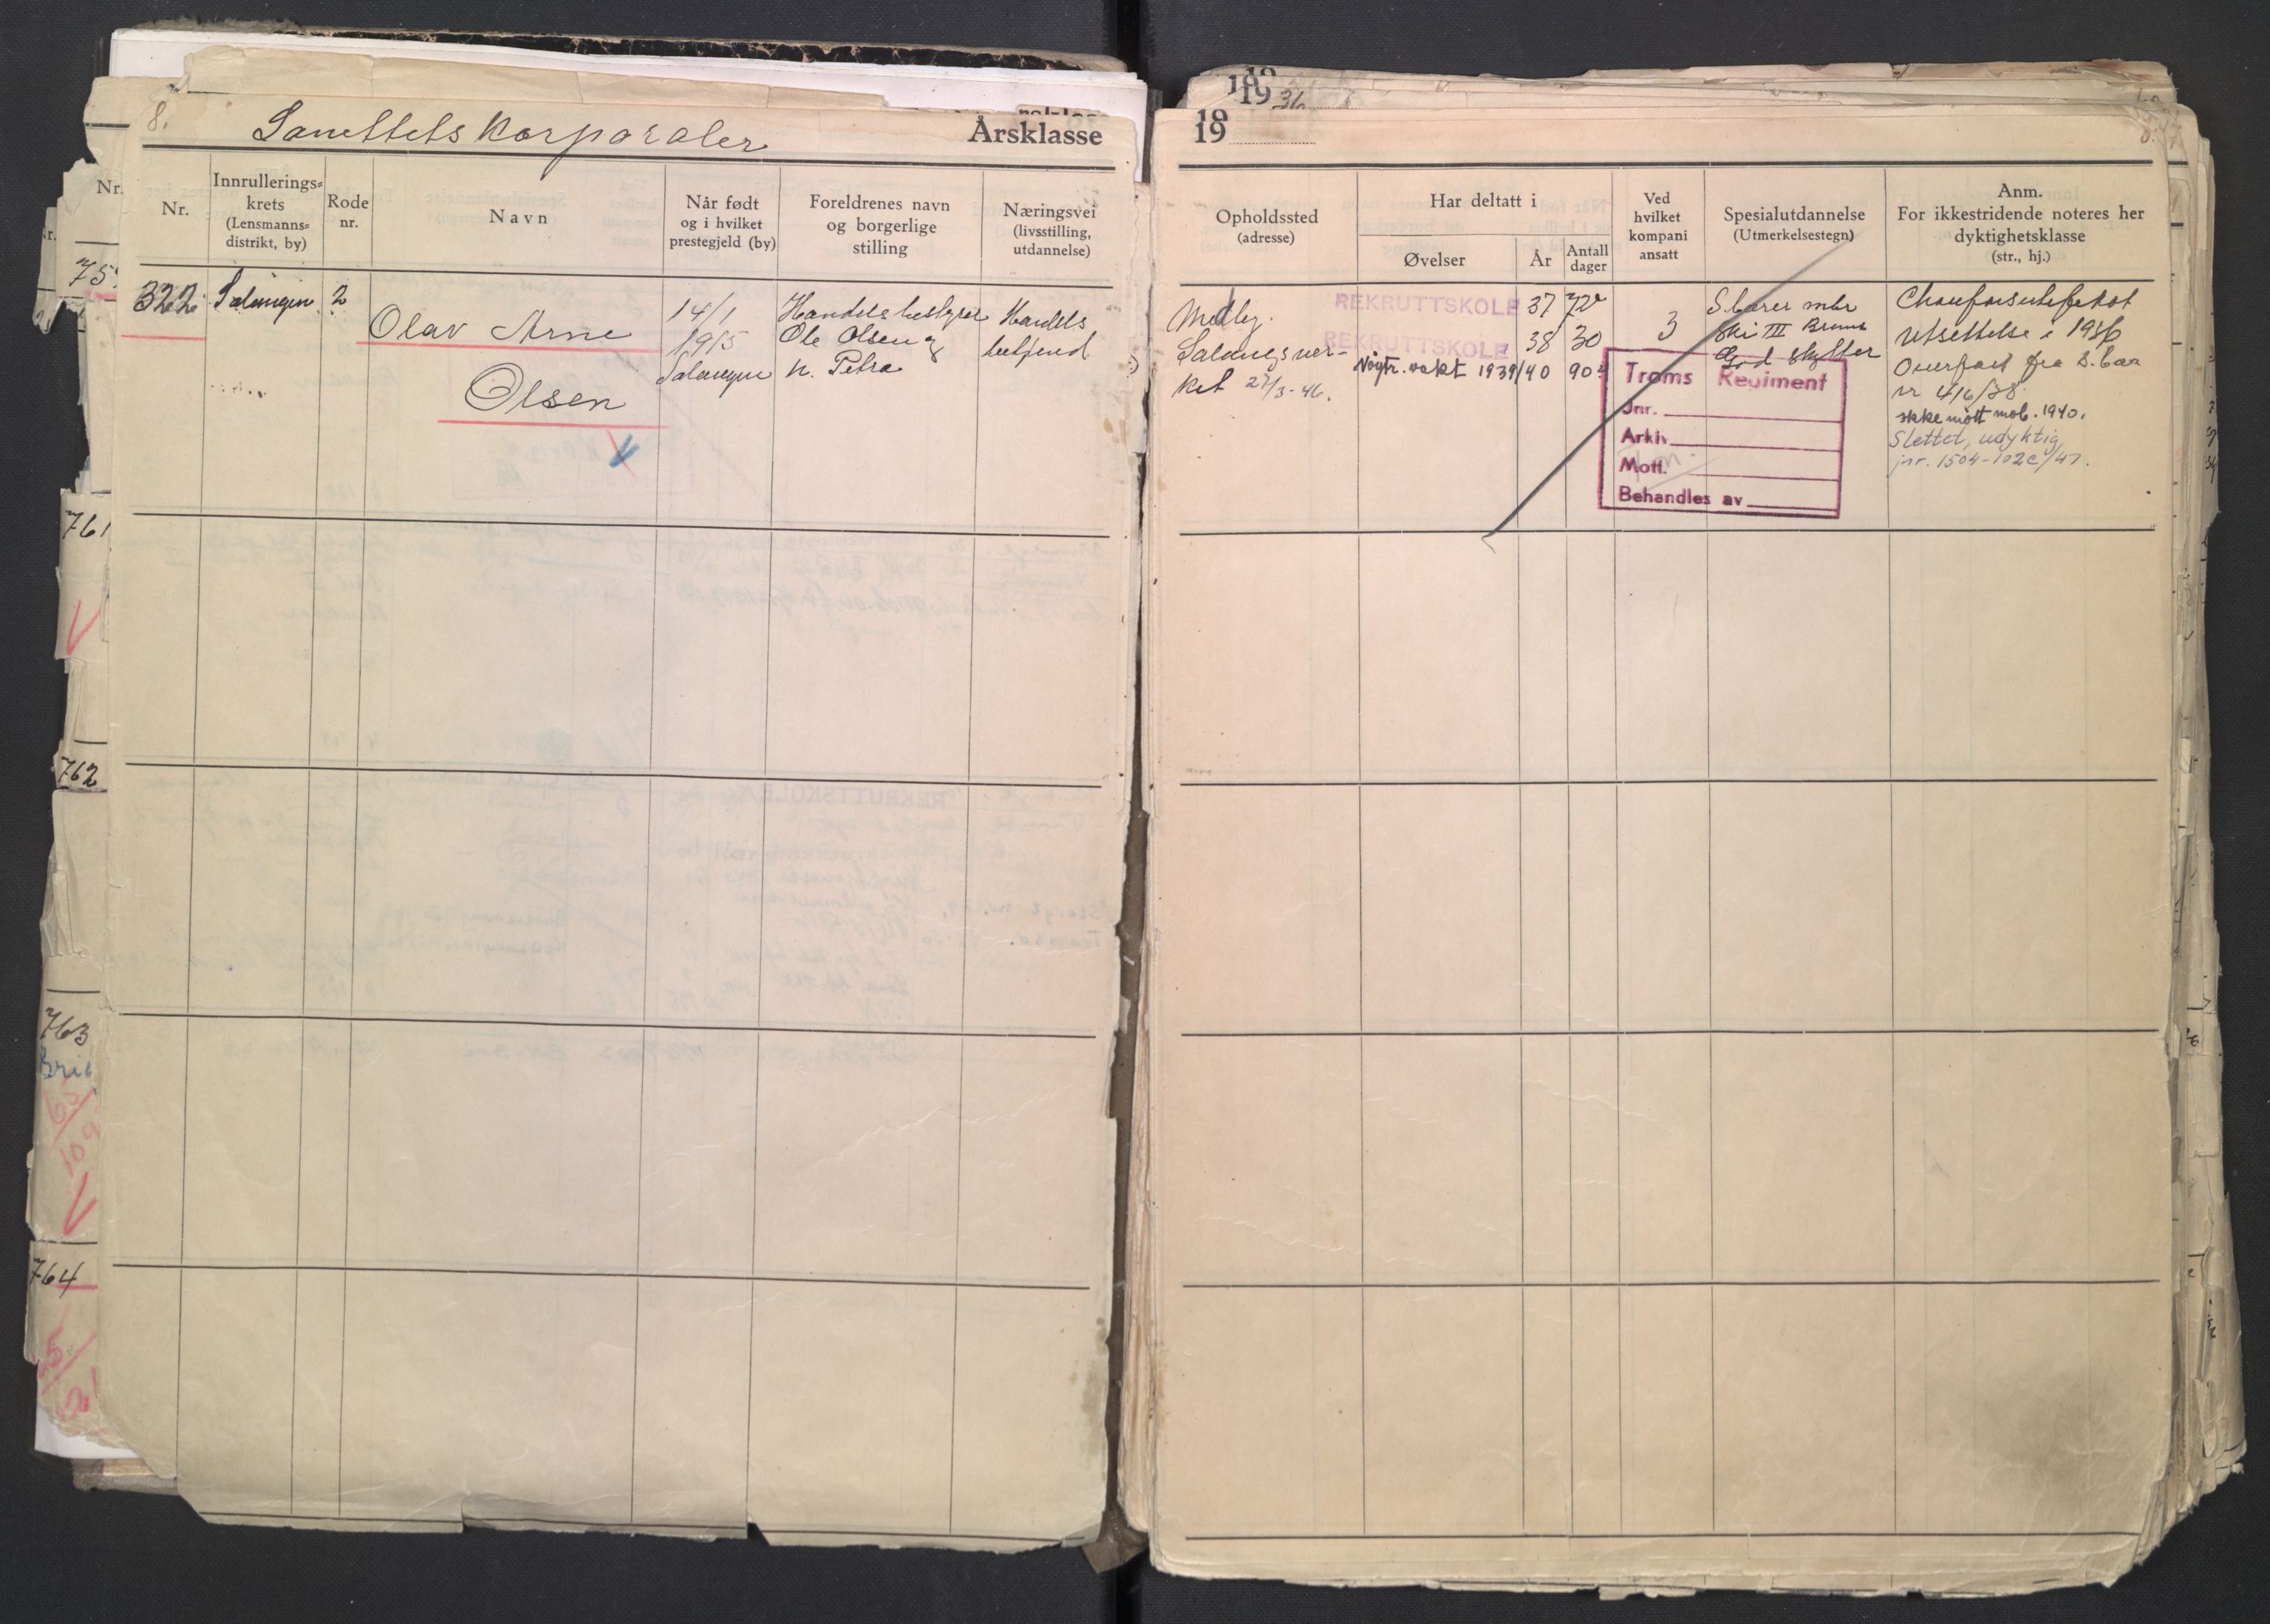 8. Sanettets Korporaler Årsklasse
Nr.
Innrullerings=
krets
(Lensmanns=
distrikt, by)
Rode
nr.
Navn
Når født
og i hvilket
prestegjeld (by)
Foreldrenes navn
og borgerlige
stilling
Næringsvei
(livsstilling,
utdannelse)
322
Salangen
2
Olav Arne
Olsen
14/1
1915
Salangen
Handelsbestyrer
Ole Olsen og
h. Petra
Handels
betjend
Nr.
75
761
762
763
764
19 36
19
8.
Opholdssted
(adresse)
Har deltatt i
Øvelser
År
Antall
dager
Ved
hvilket
kompani
ansatt
Spesialutdannelse
(Utmerkelsestegn)
Anm.
For ikkestridende noteres her
dyktighetsklasse
(str., hj.)
Medby.
Salangsver-
ket 27/3-46.
REKRUTTSKOLE 37 72
REKRUTTSKOLE 38 30
Nøytr. vakt 1939/40 90
3
S.bærer mbr
Ski III Bronse
God skytter
utsettelse i 1936
Overført fra S.bær
nr 416/38
ikke møtt mob. 1940.
Slettet, udyktig,
jnr. 1504-102c/47.
Troms Regiment
Jnr.
Arkiv
Mott.
Behandles av